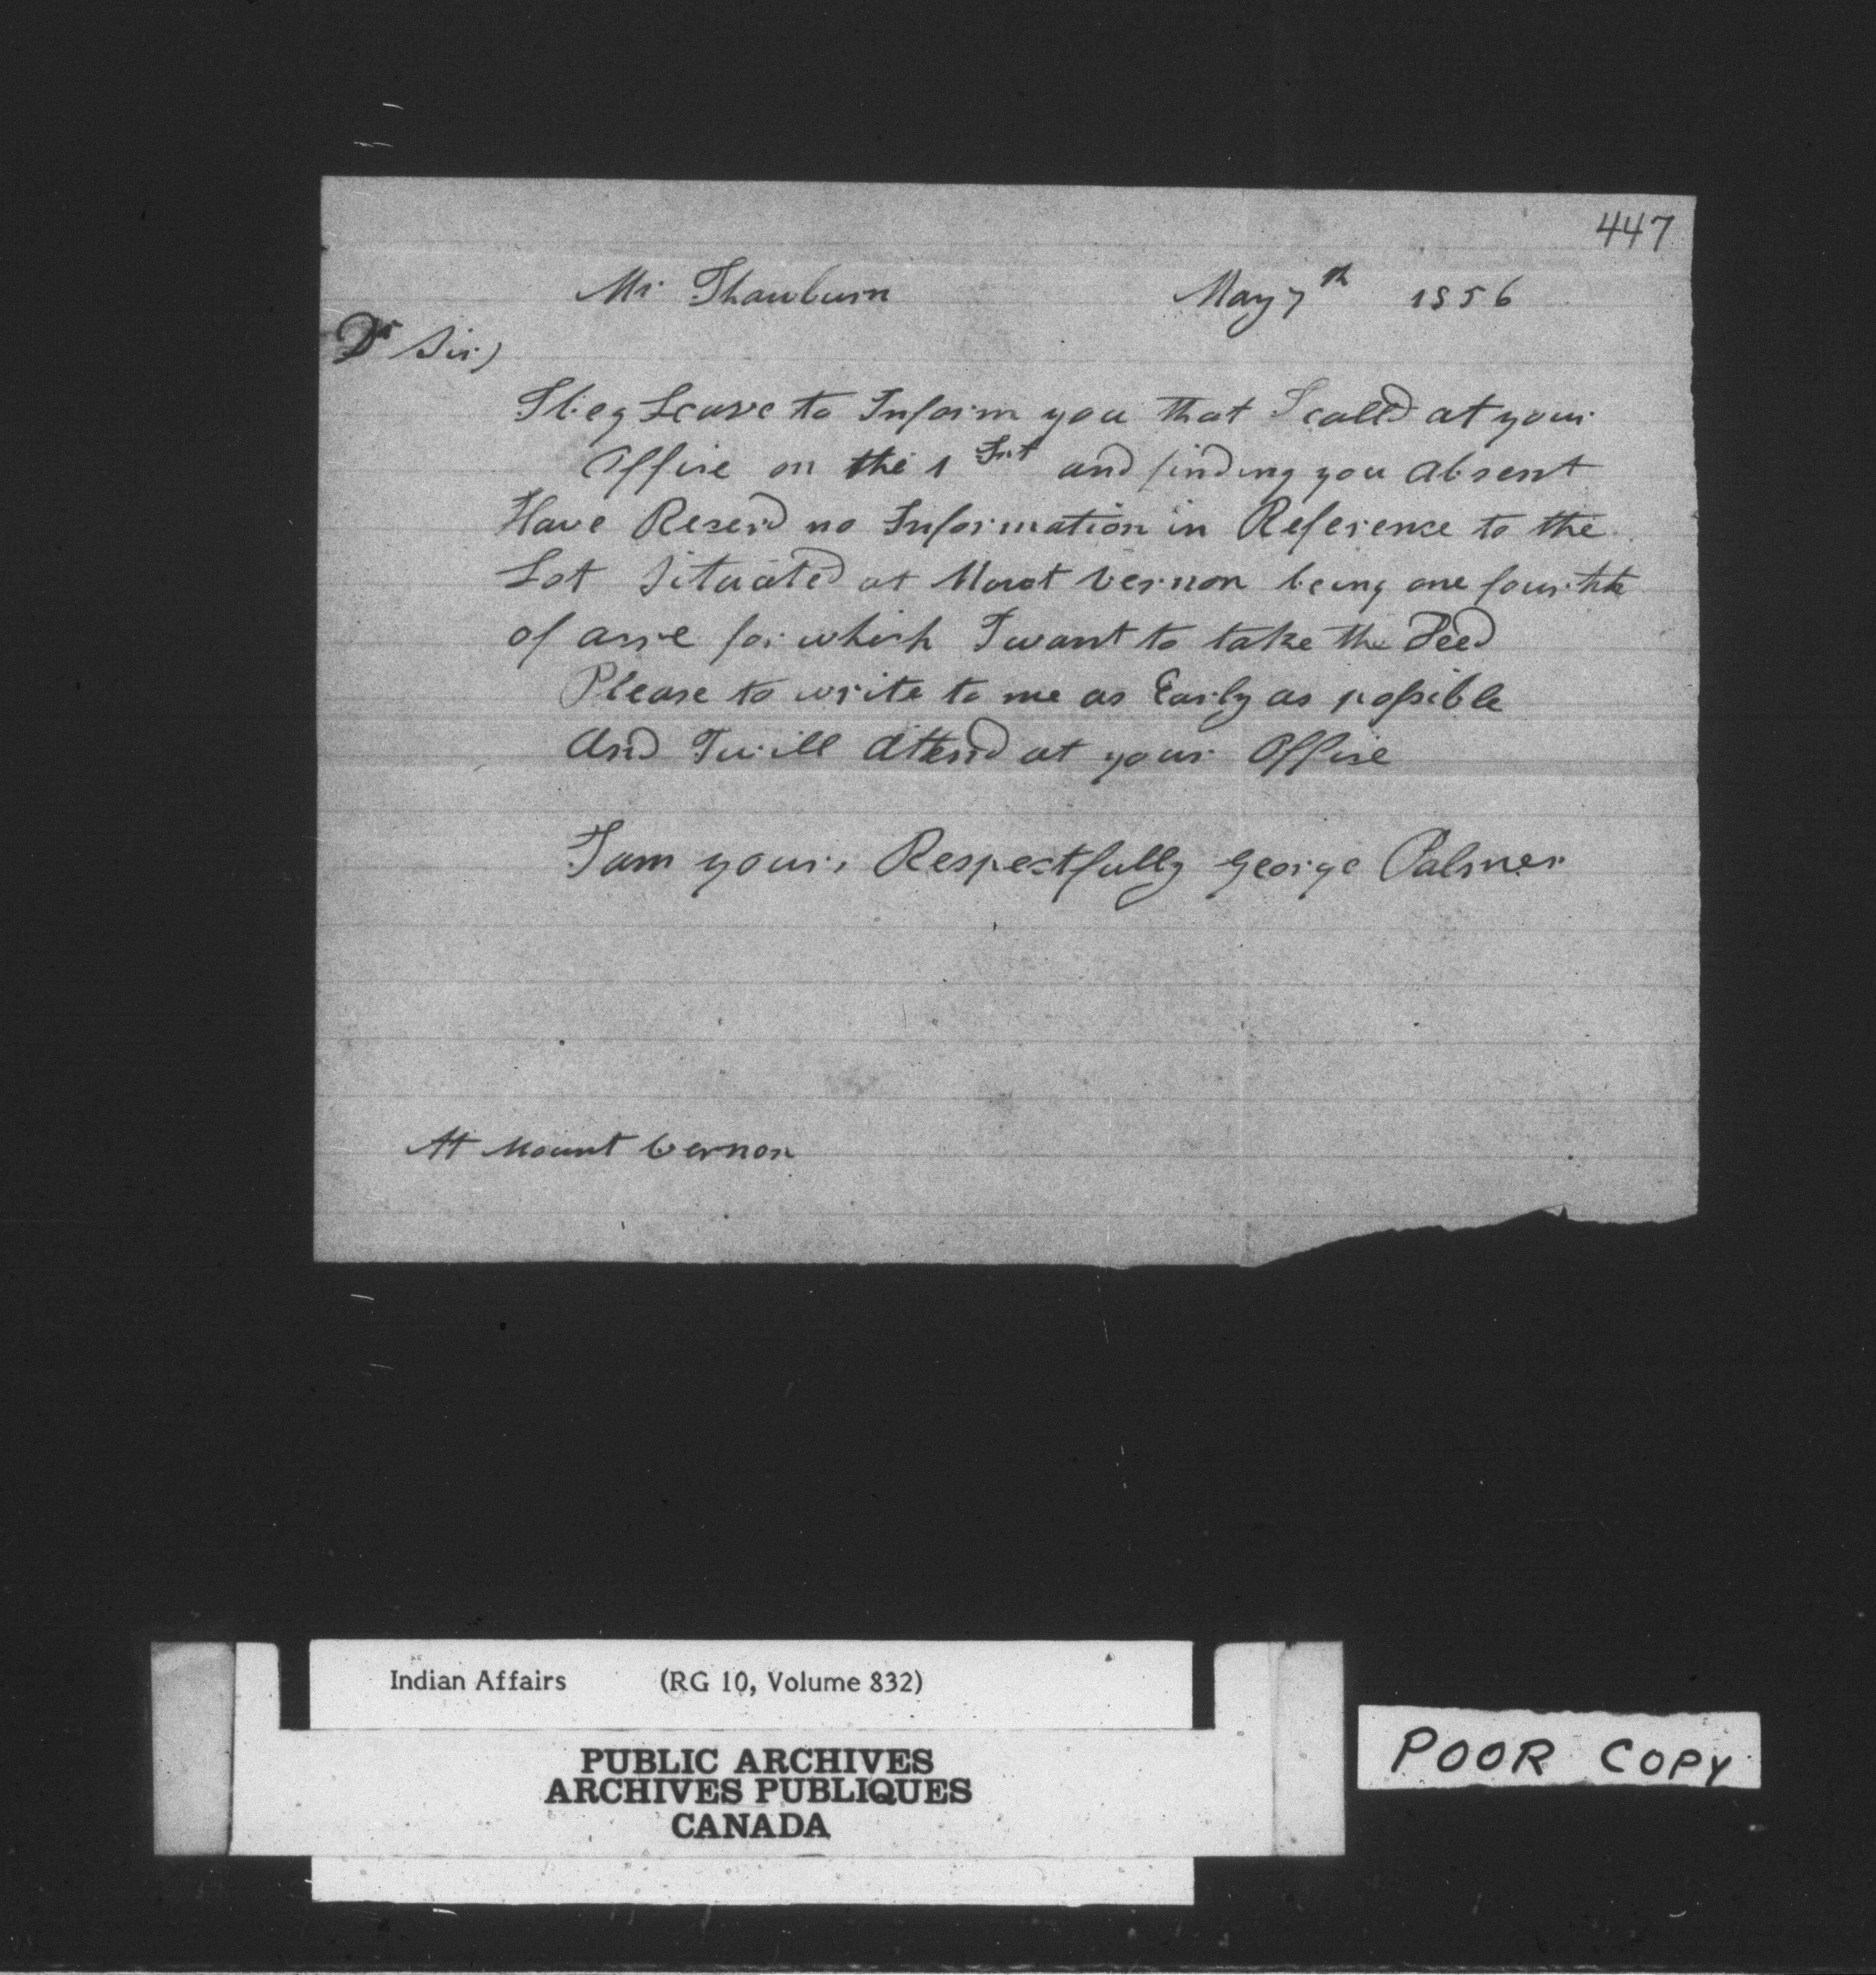 447
Mr Thawburn May 7th 1856
Dr Sir)
I beg Leave to Inform you that I calld at your
Office on the 1 Inst and finding you Absent
Have Reserd no Information in Reference to the
Lot Situated at Mount Vernon being one fourth
of acre for which I want to take the Deed
Please to write to me as Early as possible
And I will Attend at your Office
I am yours Respectfully George Palmer
At Mount Vernon
Indian Affairs (RG 10, Volume 832)
PUBLIC ARCHIVES
ARCHIVES PUBLIQUES
CANADA
POOR COPY